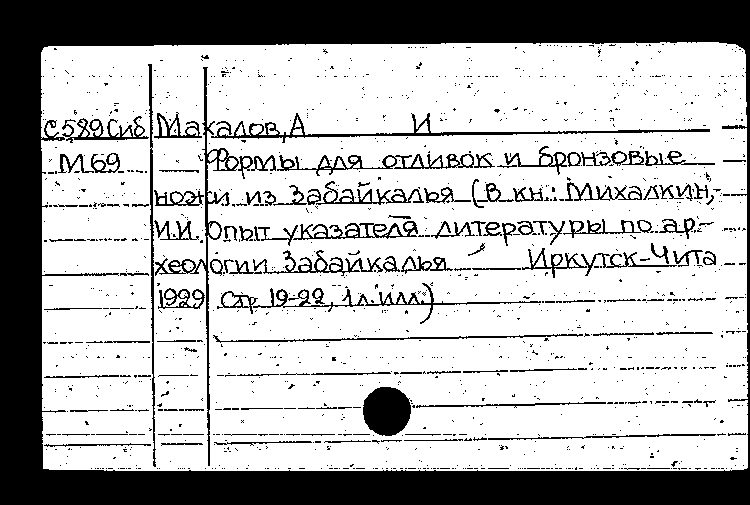 С589Сиб Махалов, А И
М69 Формы для отливок и бронзовые
ножи из Забайкалья (В кн.: Михалкин,
И.И. Опыт указателя литературы по ар-
хеологии Забайкалья Иркутск-Чита
1929 Стр 19-22, 1 л. илл.)